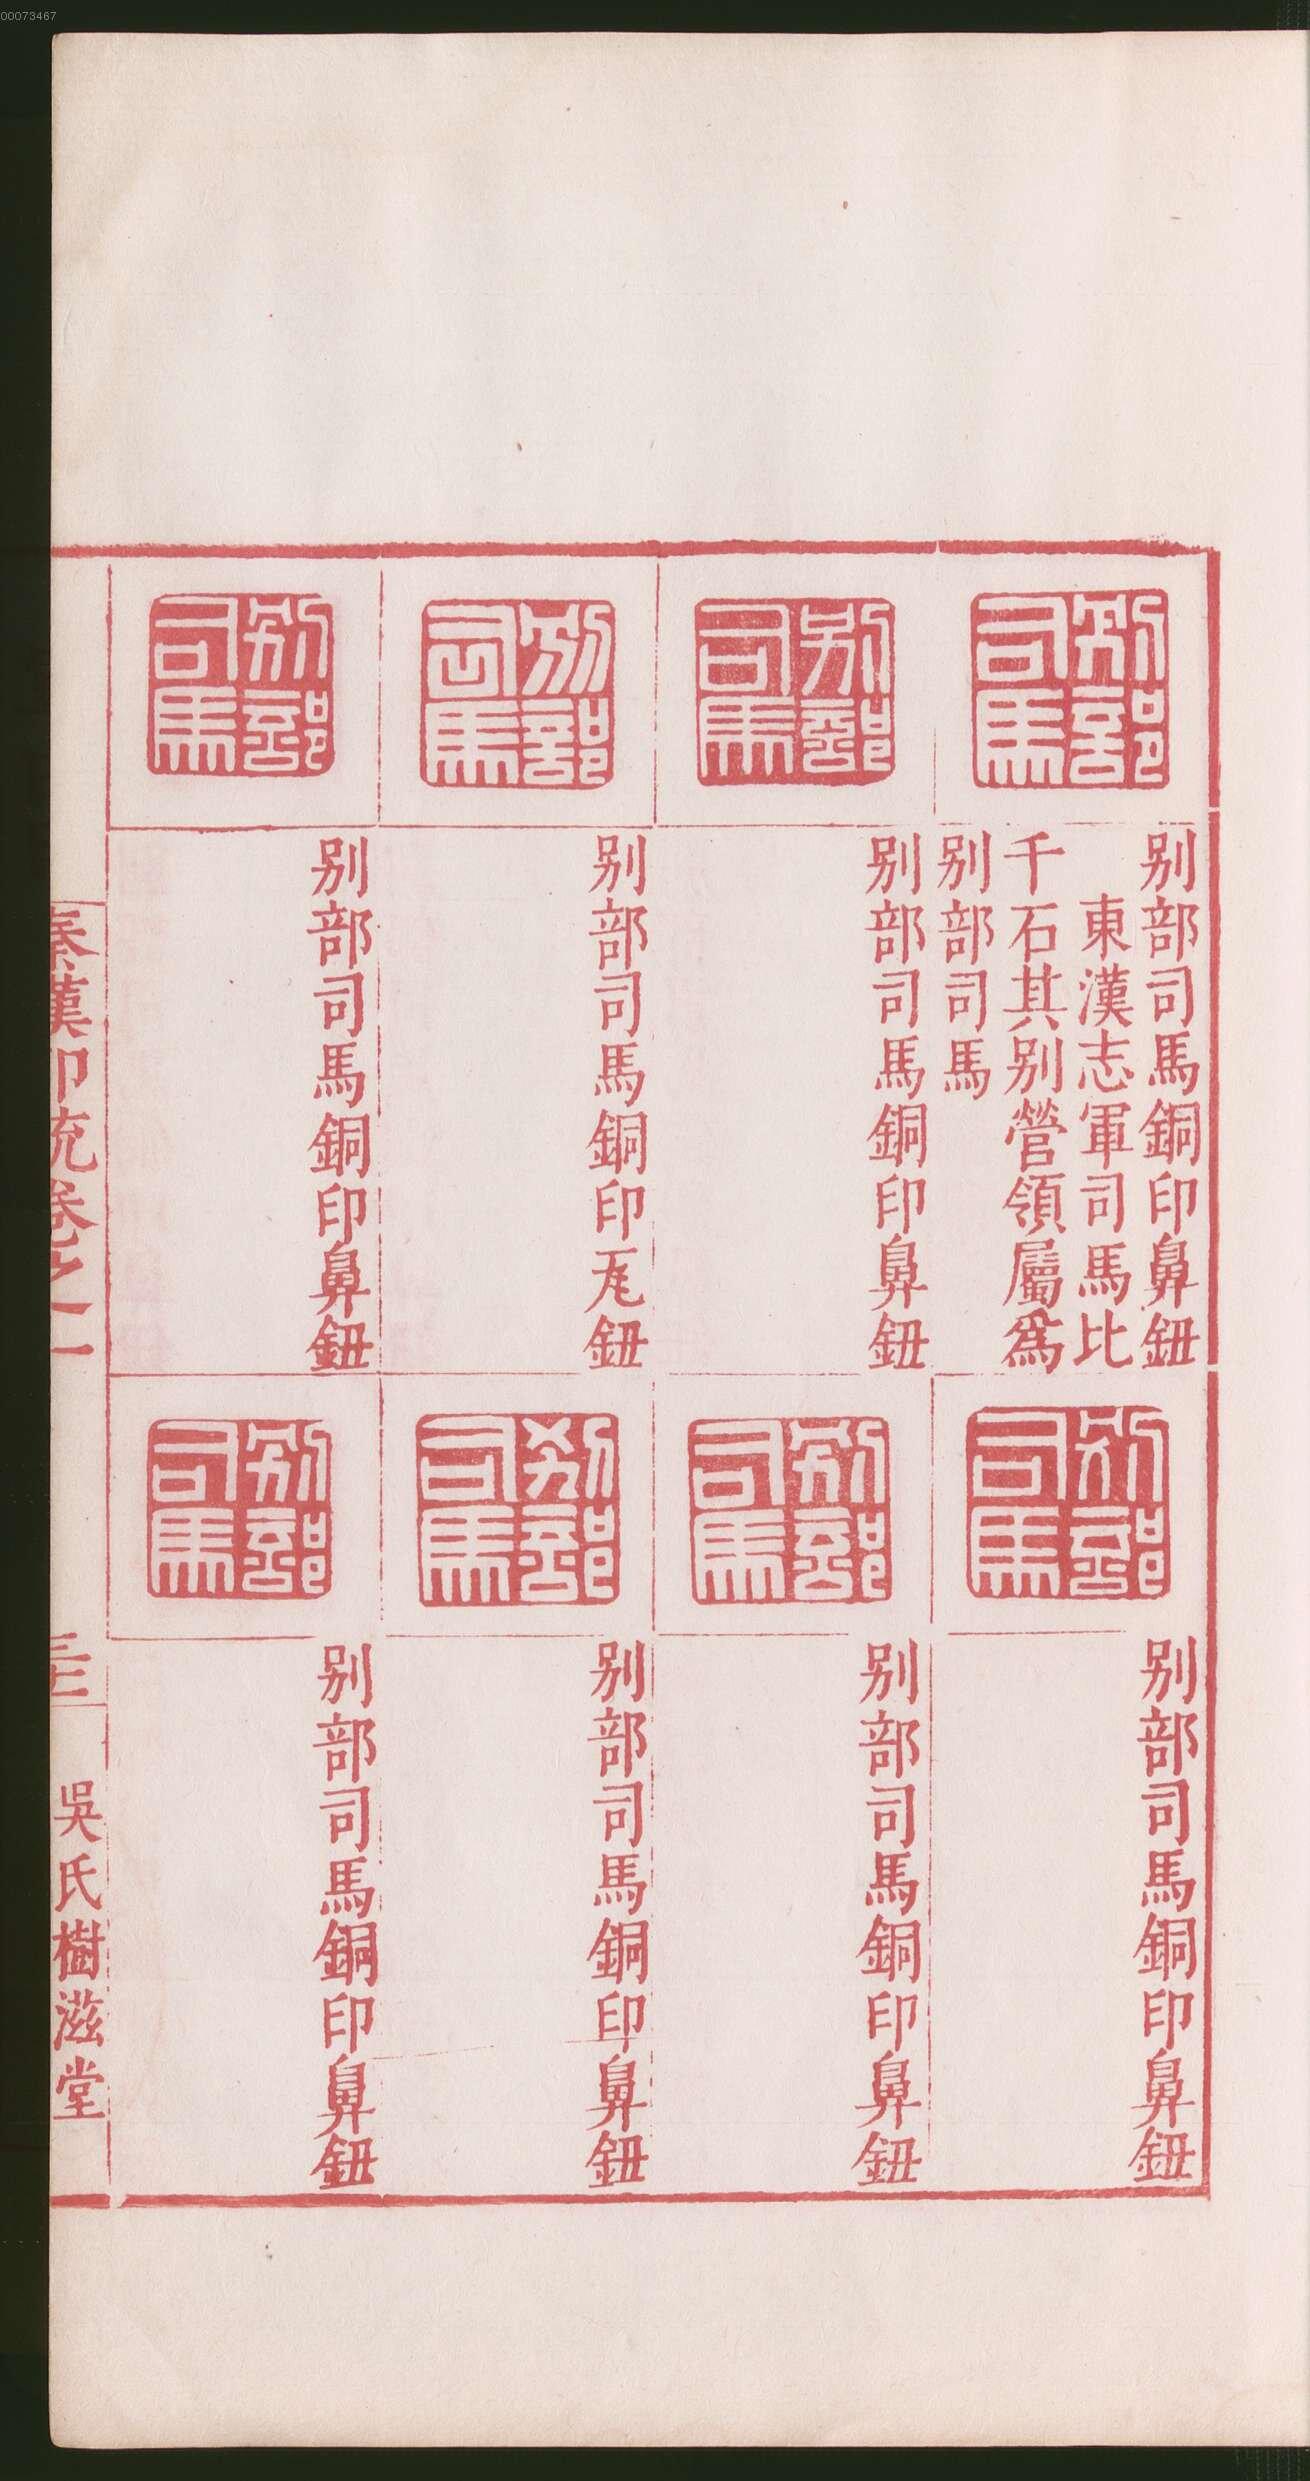 00073467
別部
司馬
別部司馬銅印鼻鈕
東漢志軍司馬比
千石其別營領屬爲
別部司馬
別部
司馬
別部司馬銅印鼻鈕
別部
司馬
別部司馬銅印瓦鈕
別部
司馬
別部司馬銅印鼻鈕
別部
司馬
別部司馬銅印鼻鈕
別部
司馬
別部司馬銅印鼻鈕
別部
司馬
別部司馬銅印鼻鈕
別部
司馬
別部司馬銅印鼻鈕
秦漢印統卷之一
吳氏樹滋堂